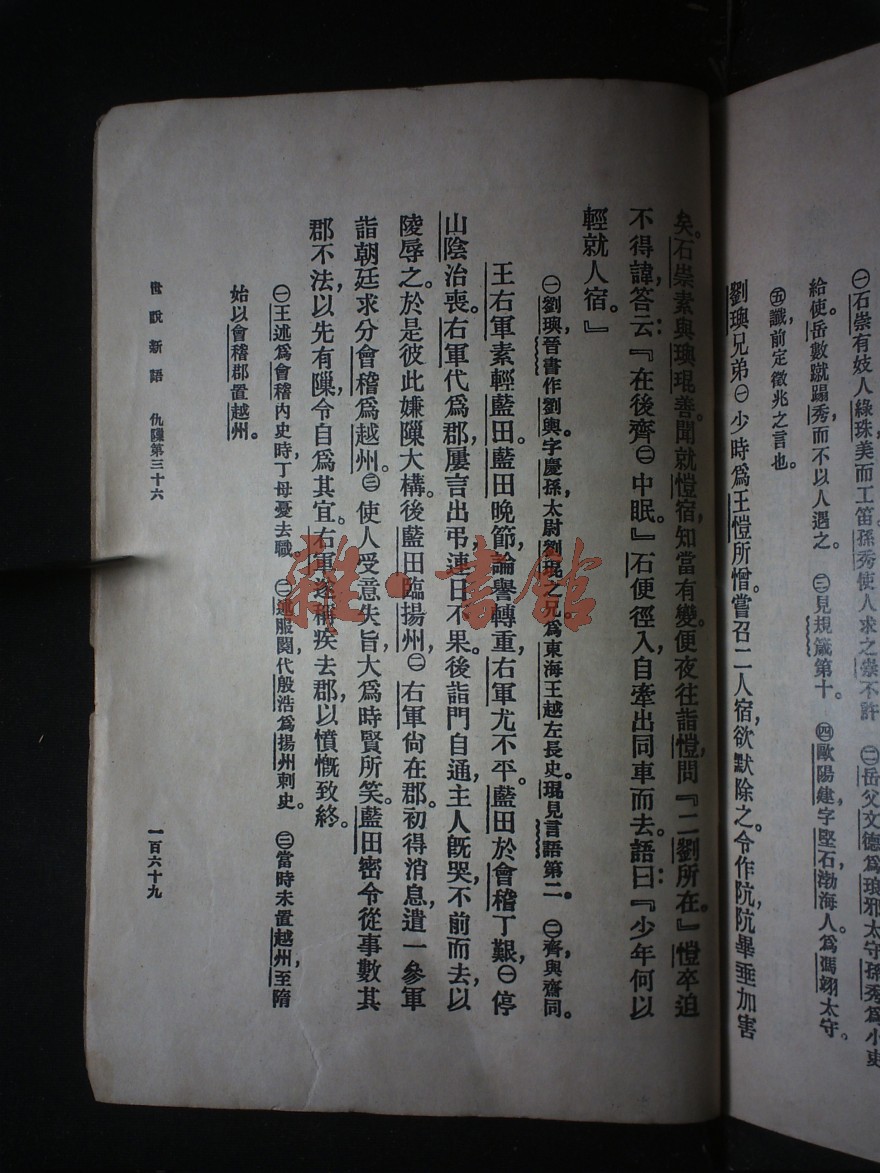 ㊀石崇有妓人綠珠美而工笛孫秀使人求之崇不許　㊁岳父文德爲琅邪太守孫秀爲小吏
給使。岳數蹴蹋秀，而不以人遇之。　㊂見規箴第十。　㊃歐陽建字堅石，渤海人，爲馮翊太守。
㊄讖，前定徵兆之言也。
劉璵兄弟㊀少時爲王愷所憎。嘗召二人宿，欲默除之。令作阬，阬畢，垂加害
矣。石崇素與璵琨善，聞就愷宿，知當有變，便夜往詣愷，問『二劉所在。』愷卒迫
不得諱，答云：『在後齊㊁中眠。』石便徑入，自牽出同車而去。語曰：『少年何以
輕就人宿。』
㊀劉璵，晉書作劉輿，字慶孫，太尉劉琨之兄，爲東海王越左長史。琨見言語第二。　㊁齊，與齋同。
王右軍素輕藍田。藍田晚節論譽轉重，右軍尤不平。藍田於會稽丁艱，㊀停
山陰治喪。右軍代爲郡，屢言出弔，連日不果。後詣門自通，主人既哭，不前而去，以
陵辱之。於是彼此嫌隟大構。後藍田臨揚州，㊁右軍尙在郡。初得消息，遣一參軍
詣朝廷，求分會稽爲越州。㊂使人受意失旨，大爲時賢所笑。藍田密令從事數其
郡不法，以先有隟，令自爲其宜。右軍遂稱疾去郡，以憤慨致終。
㊀王述爲會稽內史時，丁母憂去職。　㊁述服闋，代殷浩爲揚州刺史。　㊂當時未置越州，至隋
始以會稽郡置越州。
世說新語　仇隟第三十六　一百六十九
雜·書館